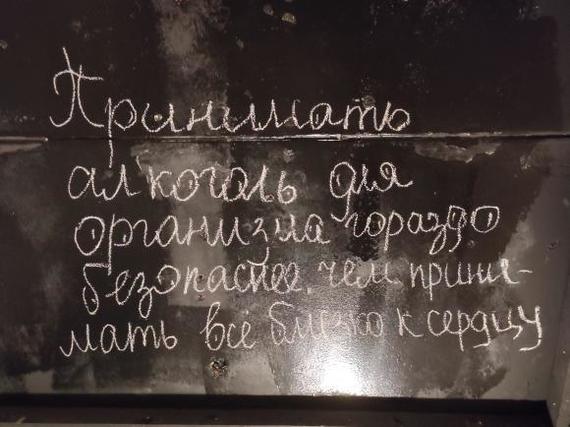 Принимать
алкоголь для
организма гораздо
безопаснее, чем прини-
мать всё близко к сердцу